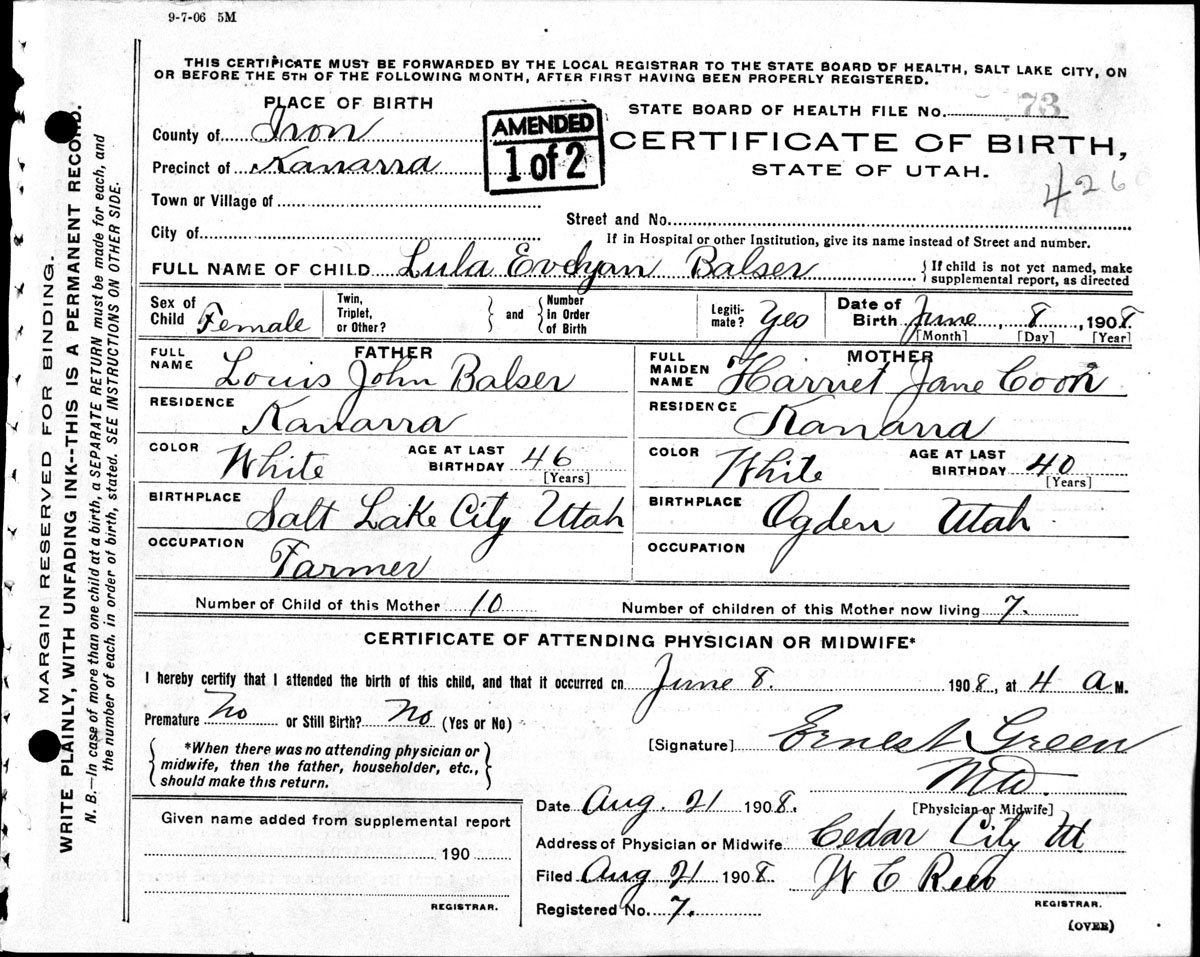 9-7-06 5M
THIS CERTIFICATE MUST BE FORWARDED BY THE LOCAL REGISTRAR TO THE STATE BOARD OF HEALTH, SALT LAKE CITY, ON
OR BEFORE THE 5TH OF THE FOLLOWING MONTH, AFTER FIRST HAVING BEEN PROPERLY REGISTERED.
PLACE OF BIRTH
STATE BOARD OF HEALTH FILE No. 73
County of Iron
AMENDED
1 of 2
CERTIFICATE OF BIRTH,
Precinct of Kanarra
STATE OF UTAH.
426
Town or Village of
Street and No.
City of
If in Hospital or other Institution, give its name instead of Street and number.
FULL NAME OF CHILD Lula Evelyan Balser
{If child is not yet named, make
supplemental report, as directed
Sex of Child Female
Twin, Triplet, or Other? } and { Number In Order of Birth
Legiti-mate? Yes
Date of Birth June 8, 1908.
[Month] [Day] [Year]
FATHER
MOTHER
FULL NAME Louis John Balser
FULL MAIDEN NAME Harriet Jane Coon
RESIDENCE Kanarra
RESIDENCE Kanarra
COLOR White AGE AT LAST BIRTHDAY 46 [Years]
COLOR White AGE AT LAST BIRTHDAY 40 [Years]
BIRTHPLACE Salt Lake City Utah
BIRTHPLACE Ogden Utah
OCCUPATION Farmer
OCCUPATION
Number of Child of this Mother 10 Number of children of this Mother now living 7.
CERTIFICATE OF ATTENDING PHYSICIAN OR MIDWIFE*
I hereby certify that I attended the birth of this child, and that it occurred on June 8. 1908, at 4 a M.
Premature No or Still Birth? No (Yes or No)
{ *When there was no attending physician or
midwife, then the father, householder, etc.,
should make this return. }
[Signature] Ernest Green
MD.
[Physician or Midwife]
Date Aug. 21 1908.
Address of Physician or Midwife Cedar City Ut
Filed Aug 21 1908. W C Rees
REGISTRAR.
Registered No. 7.
(OVER)
Given name added from supplemental report
190
REGISTRAR.
MARGIN RESERVED FOR BINDING.
WRITE PLAINLY, WITH UNFADING INK--THIS IS A PERMANENT RECORD.
N. B.—In case of more than one child at a birth, a SEPARATE RETURN must be made for each, and
the number of each, in order of birth, stated. SEE INSTRUCTIONS ON OTHER SIDE.